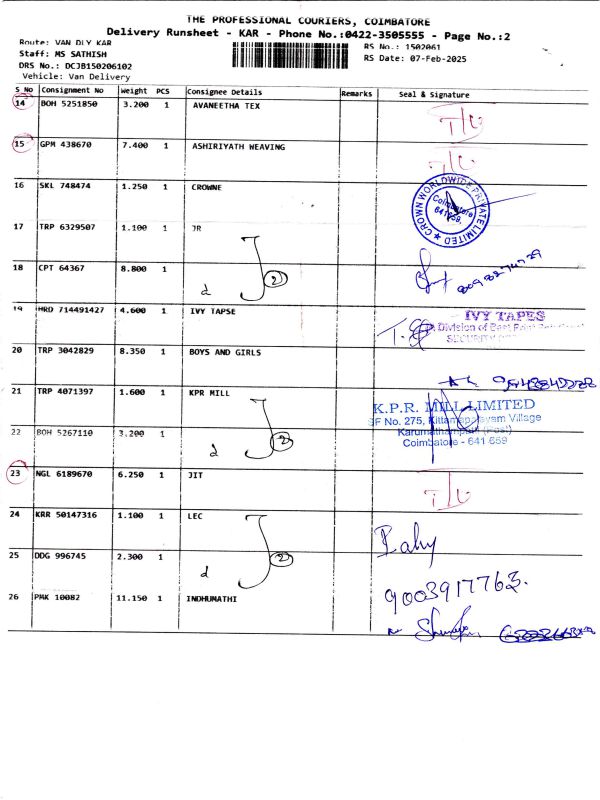 THE PROFESSIONAL COURIERS, COIMBATORE
Delivery Runsheet - KAR - Phone No.:0422-3505555 - Page No.:2
Route: VAN DLY KAR
RS No.: 1502061
Staff: MS SATHISH
RS Date: 07-Feb-2025
DRS No.: DCJB150206102
Vehicle: Van Delivery
S No Consignment No Weight PCS Consignee Details Remarks Seal & Signature
14 BOH 5251850 3.200 1 AVANEETHA TEX
15 GPM 438670 7.400 1 ASHIRIYATH WEAVING
16 SKL 748474 1.250 1 CROWNE
CROWN WORLDWIDE PRIVATE LIMITED
Coimbatore
641659
17 TRP 6329507 1.100 1 JR
18 CPT 64367 8.800 1
d 2
19 HRD 714491427 4.600 1 IVY TAPSE
IVY TAPES
20 TRP 3042829 8.350 1 BOYS AND GIRLS
21 TRP 4071397 1.600 1 KPR MILL
K.P.R. MILL LIMITED
SF No. 275, Kittampalayam Village
Karumathampatti (Post)
Coimbatore - 641 659
22 BOH 5267110 3.200 1
d 2
23 NGL 6189670 6.250 1 JIT
24 KRR 50147316 1.100 1 LEC
25 DDG 996745 2.300 1
d 2
9003917763
26 PMK 10082 11.150 1 INDHUMATHI